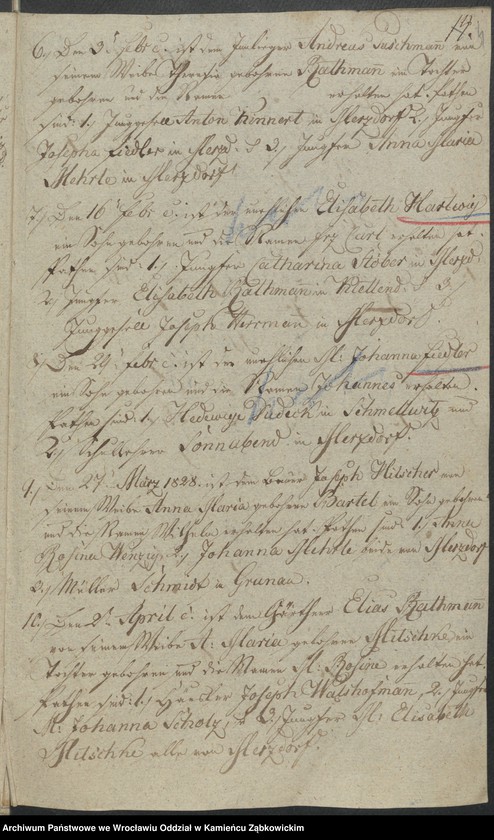 17.
6.) Den 9t Febr c. ist dem Inlieger Andreas Taschman von
seinem Weibe Theresia gebohrne Rathmann ein Tochter
gebohren und die Namen erhalten hat. Pathen
sind: 1.) Junggesell Anton Hennert in Merzdorf 2.) Jungfer
Josepha Fiedler in Merzd. & 3.) Jungfer Anna Maria
Mehrle in Merzdorf.
7.) Den 16t Febr c. ist der unehlichen Elisabeth Hartwig
ein Sohn gebohren und die Namen Carl erhalten hat.
Pathen sind: 1.) Jungfer Catharina Stöber in Merzd.
2.) Jungfer Elisabeth Rathmann in & 3.)
Junggesell Joseph Herrman in Merzdorf.
8.) Den 24t Febr c. ist der unehlichen M: Johanna Fiedler
ein Sohn gebohren und die Namen Johannes erhalten.
Pathen sind: 1.) Hedwige in Schmellwitz und
2.) Schullehrer Sonnabend in Merzdorf.
9.) Den 27. März 1828. ist dem Bauer Joseph Hitscher von
seinem Weibe Anna Maria gebohrne Bartel ein Sohn gebohren
und die Namen Wilhelm erhalten hat. Pathen sind 1.) Anna
Rosina Wenzig, 2.) Johanna Mehrle beide von Merzdorf
3.) Müller Schmidt in Grunau.
10.) Den 2t April c. ist dem Gärtner Elias Rathmann
von seinem Weibe A: Maria gebohrne Nitschke, ein
Tochter gebohren und die Namen M: Rosine erhalten hat.
Pathen sind: 1.) Häusler Joseph Halshofmann, 2.) Jungfer
M: Johanna Scholz, & 3.) Jungfer M: Elisabeth
Nitschke alle von Merzdorf.
Archiwum Państwowe we Wrocławiu Oddział w Kamieńcu Ząbkowickim